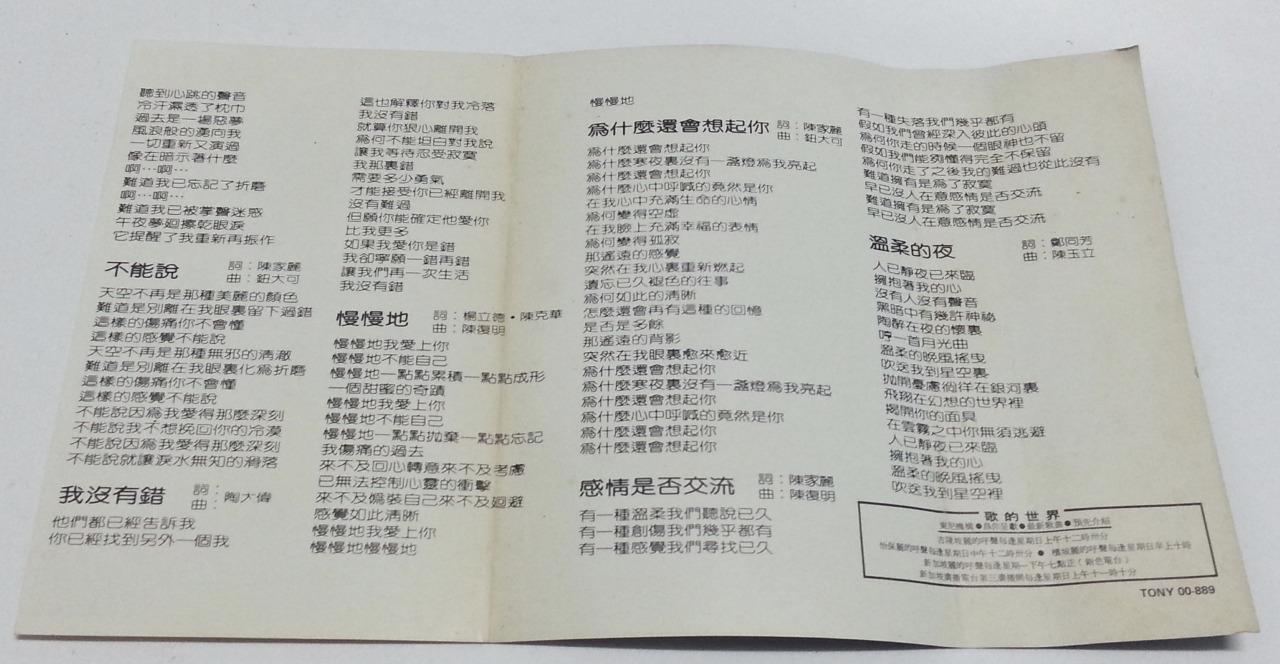 聽到心跳的聲音
冷汗濕透了枕巾
過去是一場惡夢
風浪般的湧向我
一切重新又演過
像在暗示著什麼
啊…啊…
難道我已忘記了折磨
啊…啊…
難道我已被掌聲迷惑
午夜夢廻擦乾眼淚
它提醒了我重新再振作
不能說
詞：陳家麗
曲：鈕大可
天空不再是那種美麗的顏色
難道是別離在我眼裏留下過錯
這樣的傷痛你不會懂
這樣的感覺不能說
天空不再是那種無邪的清澈
難道是別離在我眼裏化為折磨
這樣的傷痛你不會懂
這樣的感覺不能說
不能說因為我愛得那麼深刻
不能說我不想挽回你的冷漠
不能說因為我愛得那麼深刻
不能說就讓淚水無知的滑落
我沒有錯
詞：
曲：
陶大偉
他們都已經告訴我
你已經找到另外一個我
這也解釋你對我冷落
我沒有錯
就算你狠心離開我
為何不能坦白對我說
讓我等待忍受寂寞
我那裏錯
需要多少勇氣
才能接受你已經離開我
沒有難過
但願你能確定他愛你
比我更多
如果我愛你是錯
我卻寧願一錯再錯
讓我們再一次生活
我沒有錯
慢慢地
詞：楊立德・陳克華
曲：陳復明
慢慢地我愛上你
慢慢地不能自己
慢慢地一點點累積一點點成形
一個甜蜜的奇蹟
慢慢地我愛上你
慢慢地不能自己
慢慢地一點點拋棄一點點忘記
我傷痛的過去
來不及回心轉意來不及考慮
已無法控制心靈的衝擊
來不及偽裝自己來不及迴避
感覺如此清晰
慢慢地我愛上你
慢慢地慢慢地
慢慢地
為什麼還會想起你
詞：陳家麗
曲：鈕大可
為什麼還會想起你
為什麼寒夜裏沒有一盞燈為我亮起
為什麼還會想起你
為什麼心中呼喊的竟然是你
在我心中充滿生命的心情
為何變得空虛
在我臉上充滿幸福的表情
為何變得孤寂
那遙遠的感覺
突然在我心裏重新燃起
遺忘已久褪色的往事
為何如此的清晰
怎麼還會再有這種的回憶
是否是多餘
那遙遠的背影
突然在我眼裏愈來愈近
為什麼還會想起你
為什麼寒夜裏沒有一盞燈為我亮起
為什麼還會想起你
為什麼心中呼喊的竟然是你
為什麼還會想起你
為什麼還會想起你
感情是否交流
詞：陳家麗
曲：陳復明
有一種溫柔我們聽說已久
有一種創傷我們幾乎都有
有一種感覺我們尋找已久
有一種失落我們幾乎都有
假如我們曾經深入彼此的心頭
為何你走的時候一個眼神也不留
假如我們能夠懂得完全不保留
為何你走了之後我的難過也從此沒有
難道擁有是為了寂寞
早已沒人在意感情是否交流
難道擁有是為了寂寞
早已沒人在意感情是否交流
溫柔的夜
詞：鄭同芳
曲：陳玉立
人已靜夜已來臨
擁抱著我的心
沒有人沒有聲音
黑暗中有幾許神祕
陶醉在夜的懷裏
哼一首月光曲
溫柔的晚風搖曳
吹送我到星空裏
拋開憂慮徜徉在銀河裏
飛翔在幻想的世界裡
揭開你的面具
在雲霧之中你無須逃避
人已靜夜已來臨
擁抱著我的心
溫柔的晚風搖曳
吹送我到星空裡
歌的世界
東尼機構●為你呈獻●最新歌曲●預先介紹
吉隆坡麗的呼聲每逢星期日上午十二時卅分
怡保麗的呼聲每逢星期日中午十二時卅分 ● 檳城麗的呼聲每逢星期日早上十時
新加坡麗的呼聲每逢星期一下午七點正（銀色電台）
新加坡廣播電台第三廣播網每逢星期日上午十一時十分
TONY 00-889